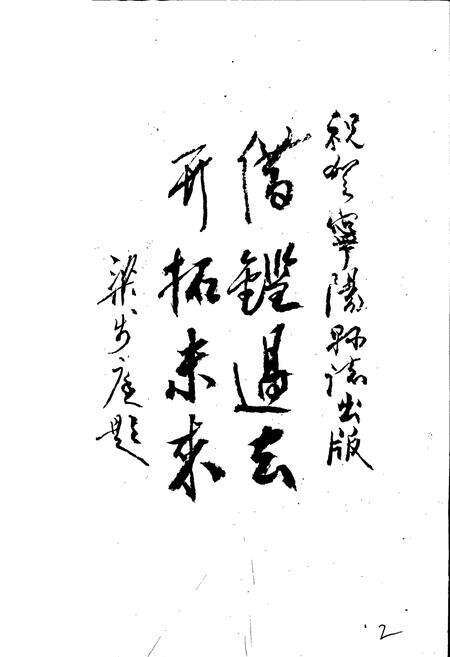 祝贺寧陽县誌出版
借鑑過去
开拓未来
梁步庭题
2